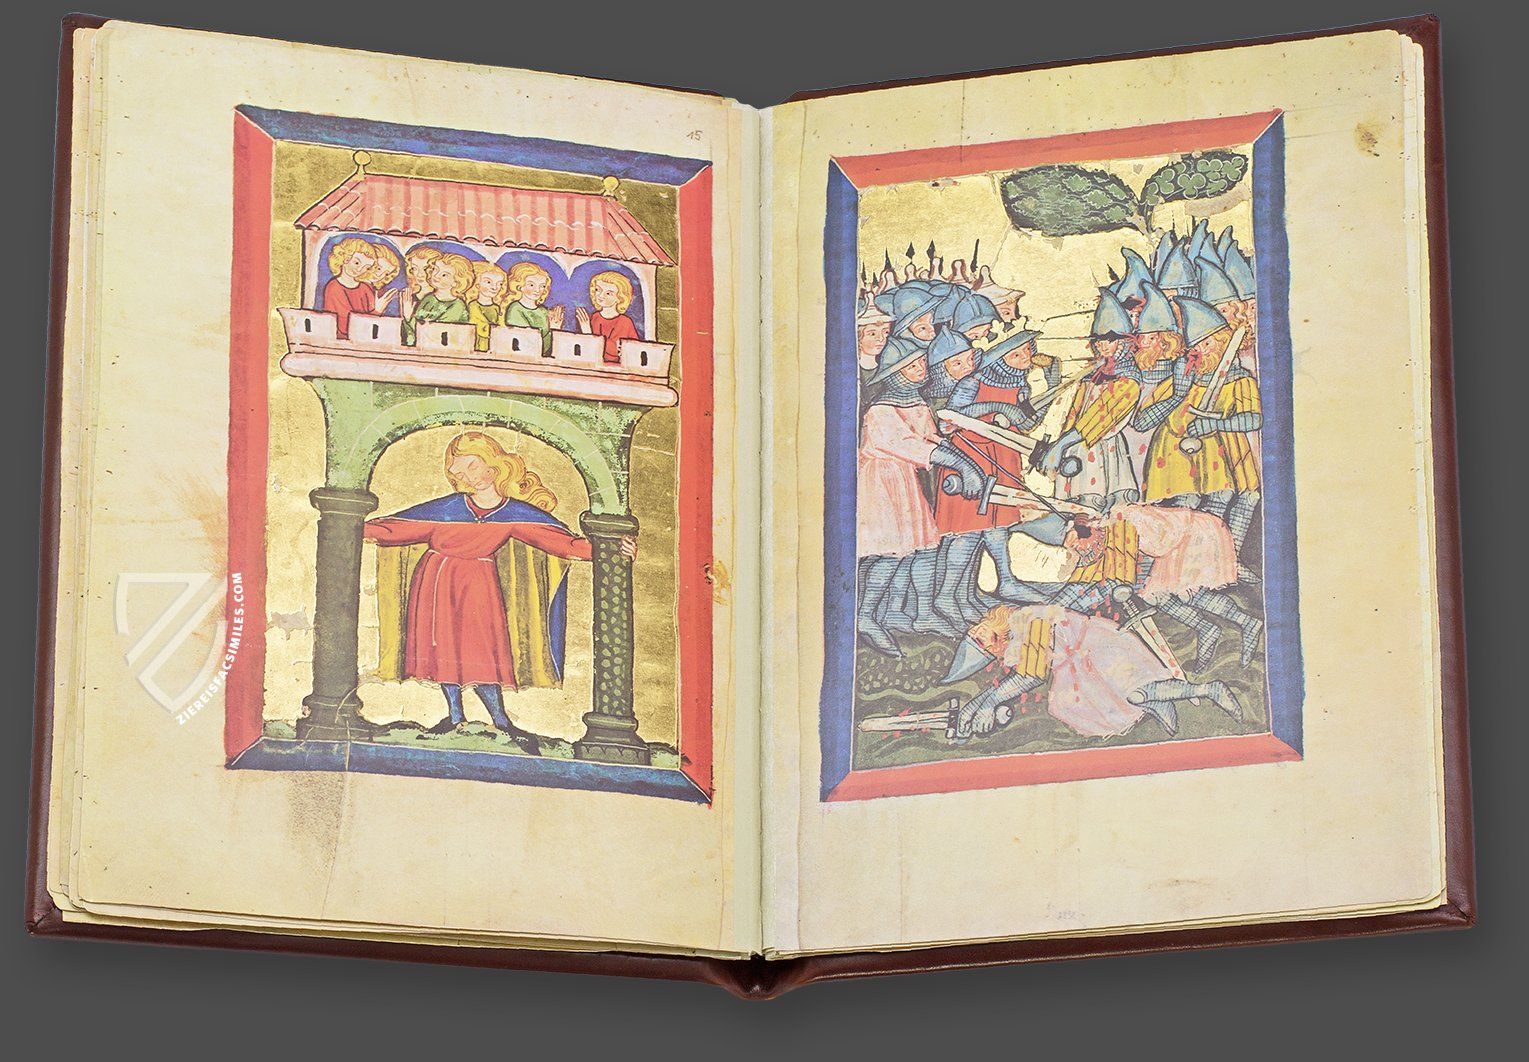 15
ZIEREISFACSIMILES.COM